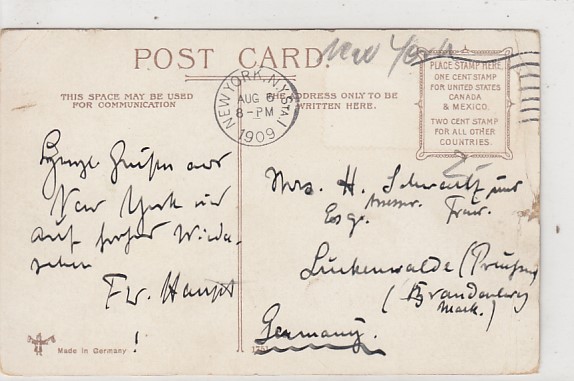 New York
POST CARD
THIS SPACE MAY BE USED
FOR COMMUNICATION
THE ADDRESS ONLY TO BE
WRITTEN HERE.
NEW YORK, N.Y. STA I
AUG 6
8-PM
1909
PLACE STAMP HERE
ONE CENT STAMP
FOR UNITED STATES
CANADA
& MEXICO.
TWO CENT STAMP
FOR ALL OTHER
COUNTRIES.
Grüße aus
New York und
auf frohes Wieder-
sehen
Fr. Haupt
!
Mrs. H. Schwartz und
Esqr. Frau.
Luckenwalde (Preußen)
(Brandenburg
Mark.)
Germany.
Made in Germany